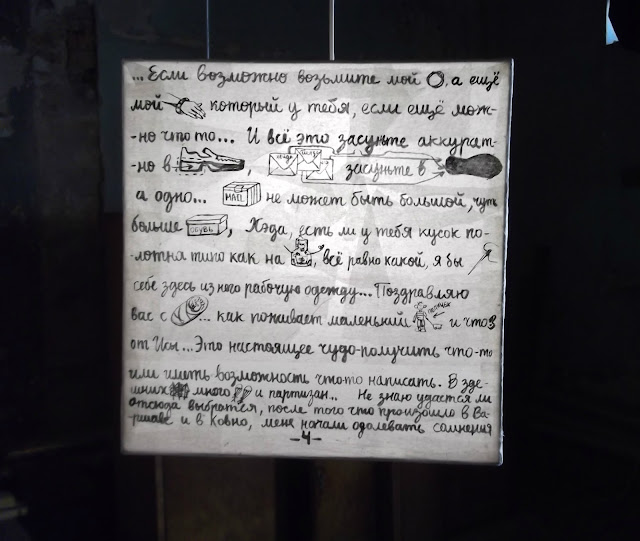 ... Если возможно возьмите мой , а ещё
мой который у тебя, если ещё мож-
-но что то... И всё это засуньте аккурат-
-но в , засуньте в
а одно... МАЦ не может быть большой, чуть
больше ОБУВЬ, Хэда, есть ли у тебя кусок по-
-лотна типо как на , всё равно какой, я бы
себе здесь из него рабочую одежду... Поздравляю
вас с ... как поживает маленький и что з
от Исы... Это настоящее чудо-получить что-то
или иметь возможность что то написать. В зде-
шних много и партизан.. Не знаю удастся ли
отсюда выбраться, после того что произошло в Ва-
ршаве и в Ковно, меня начали одолевать сомнения
-4-